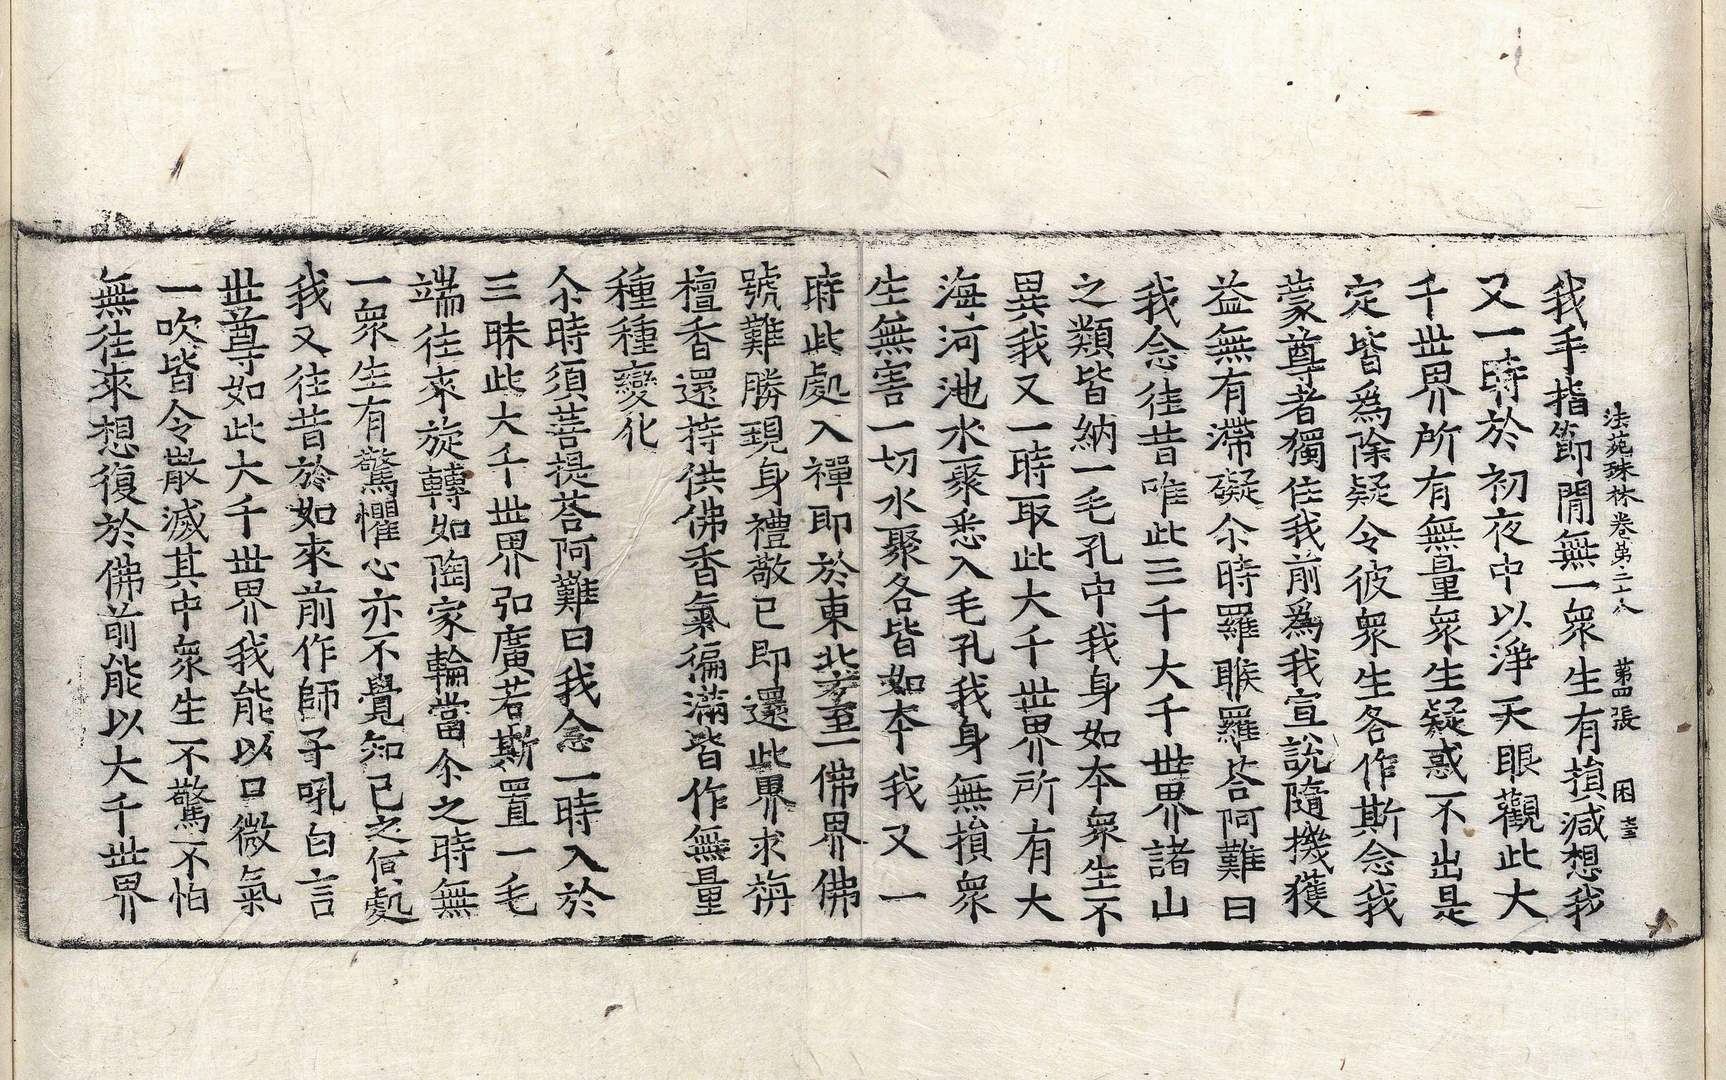 法苑珠林卷第二十八　第四張　困
我手指節閒無一衆生有損減想我
又一時於初夜中以淨天眼觀此大
千世界所有無量衆生疑惑不出是
定皆爲除疑令彼衆生各作斯念我
蒙尊者獨住我前爲我宣說隨機獲
益無有滯礙尒時羅睺羅荅阿難曰
我念往昔唯此三千大千世界諸山
之類皆納一毛孔中我身如本衆生不
異我又一時取此大千世界所有大
海河池水聚悉入毛孔我身無損衆
生無害一切水聚各皆如本我又一
時此處入禪即於東北方至一佛界佛
號難勝現身禮敬已即還此界求栴
檀香還持供佛香氣徧滿皆作無量
種種變化
尒時須菩提荅阿難曰我念一時入於
三昧此大千世界弘廣若斯置一毛
端往來旋轉如陶家輪當尒之時無
一衆生有驚懼心亦不覺知已之何處
我又往昔於如來前作師子吼白言
世尊如此大千世界我能以口微氣
一吹皆令散滅其中衆生不驚不怕
無往來想復於佛前能以大千世界